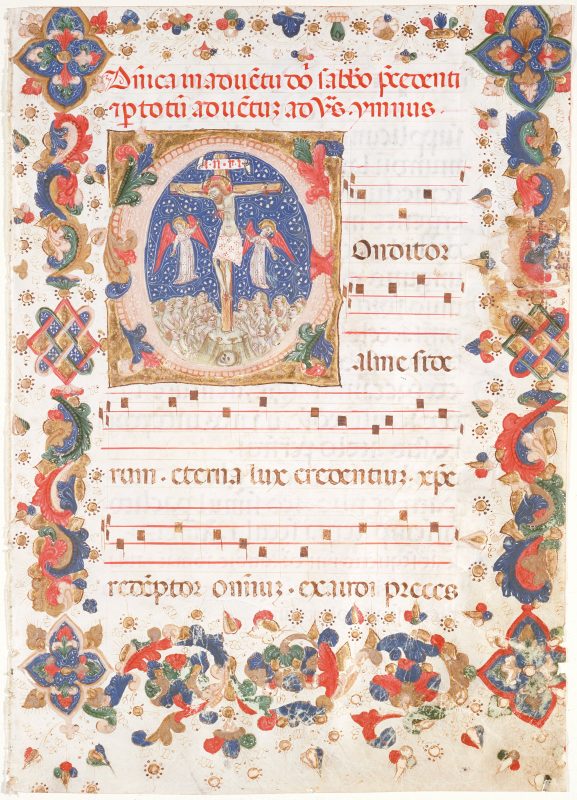 Dñica in advẽtu dõ sabbo p̃cedenti
ip totũ adventuz ad vs. ymnus.
I·N·R·I
Onditor
alme side
rum · eterna lux credentiuz · xpe
redẽptor om̃iuz · exaudi preces